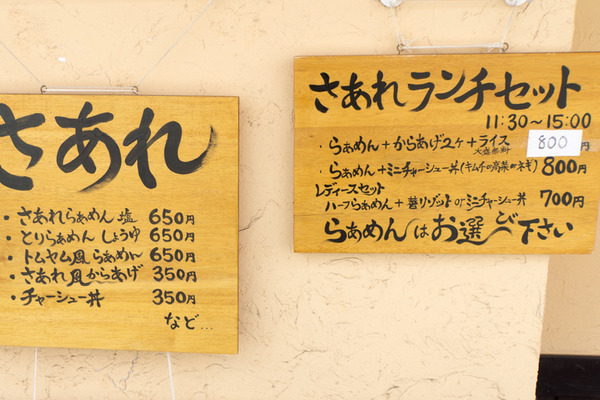 さあれ
・さあれらぁめん 塩 650円
・とりらぁめん しょうゆ 650円
・トムヤム風らぁめん 650円
・さあれ風からあげ 350円
・チャーシュー丼 350円
など…
さあれランチセット
11:30～15:00
・らぁめん+からあげ2ヶ+ライス 800円
大盛無料
・らぁめん+ミニチャーシュー丼(キムチor高菜orネギ) 800円
レディースセット
ハーフらぁめん+ リゾット or ミニチャーシュー丼 700円
らぁめんはお選び下さい